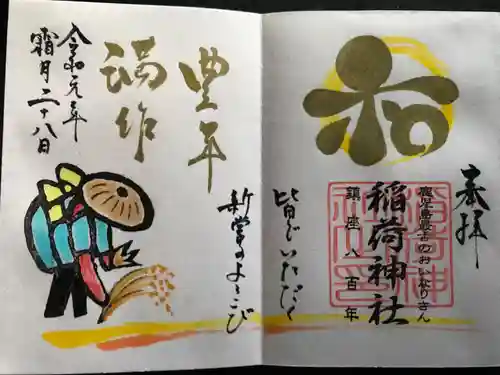 奉拝
鹿児島最古のおいなりさん
稲荷神社
鎮座八百年
和
皆でいただく
新嘗のよろこび
豊年
満作
令和元年
霜月二十八日